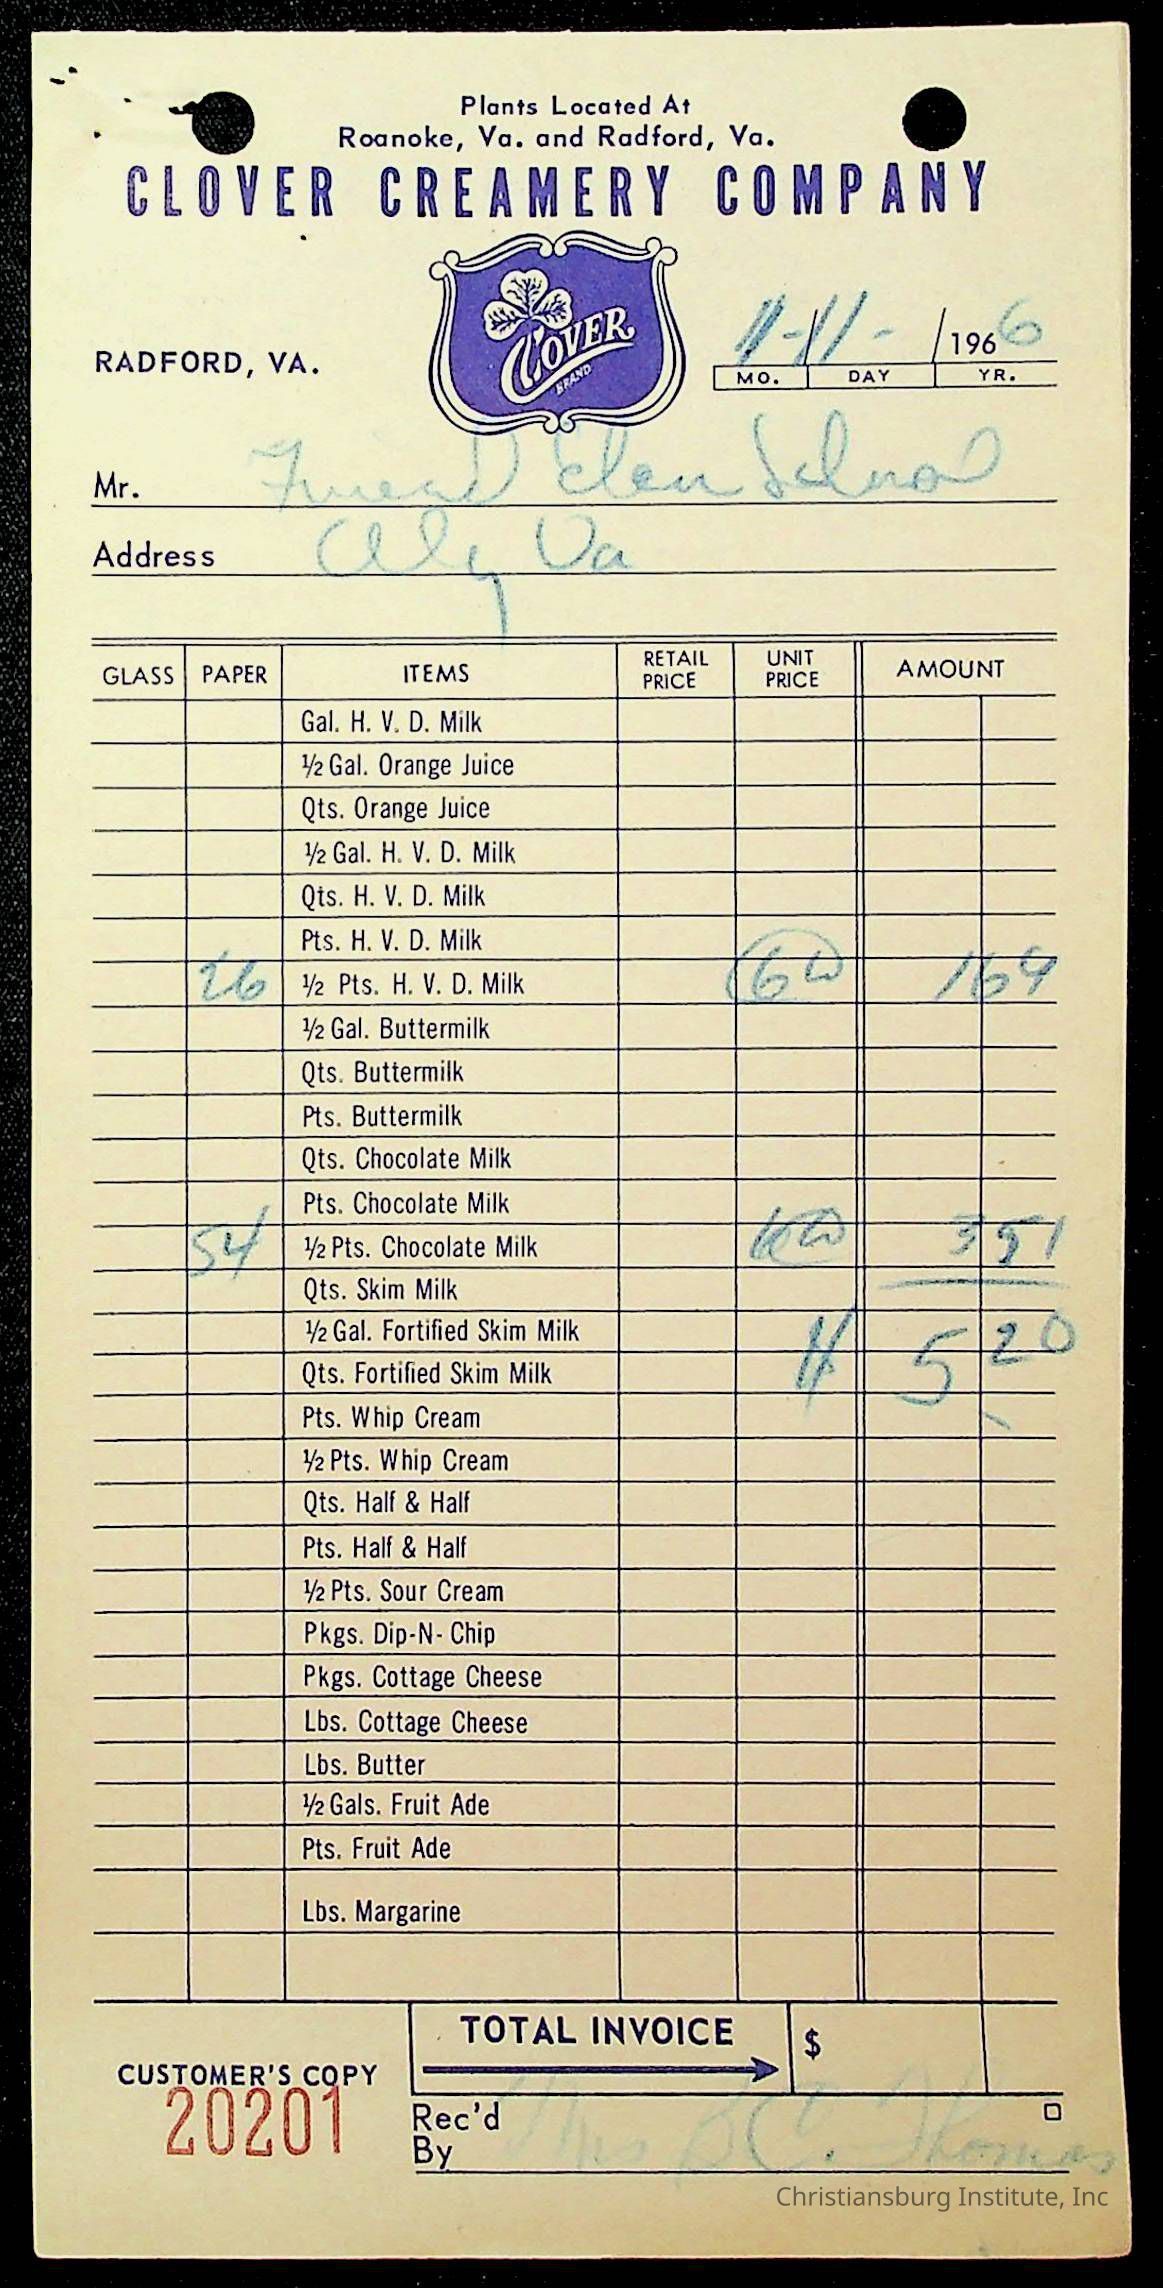 Plants Located At
Roanoke, Va. and Radford, Va.
CLOVER CREAMERY COMPANY
CLOVER
BRAND
RADFORD, VA.
11-11- /1966
MO. DAY YR.
Mr. Friend Elem School
Address Va
GLASS PAPER ITEMS RETAIL PRICE UNIT PRICE AMOUNT
Gal. H. V. D. Milk
½ Gal. Orange Juice
Qts. Orange Juice
½ Gal. H. V. D. Milk
Qts. H. V. D. Milk
Pts. H. V. D. Milk
26 ½ Pts. H. V. D. Milk 169
½ Gal. Buttermilk
Qts. Buttermilk
Pts. Buttermilk
Qts. Chocolate Milk
Pts. Chocolate Milk
54 ½ Pts. Chocolate Milk 351
Qts. Skim Milk
½ Gal. Fortified Skim Milk 520
Qts. Fortified Skim Milk
Pts. Whip Cream
½ Pts. Whip Cream
Qts. Half & Half
Pts. Half & Half
½ Pts. Sour Cream
Pkgs. Dip-N-Chip
Pkgs. Cottage Cheese
Lbs. Cottage Cheese
Lbs. Butter
½ Gals. Fruit Ade
Pts. Fruit Ade
Lbs. Margarine
TOTAL INVOICE $
CUSTOMER'S COPY
20201
Rec'd
By Mrs Thomas
Christiansburg Institute, Inc